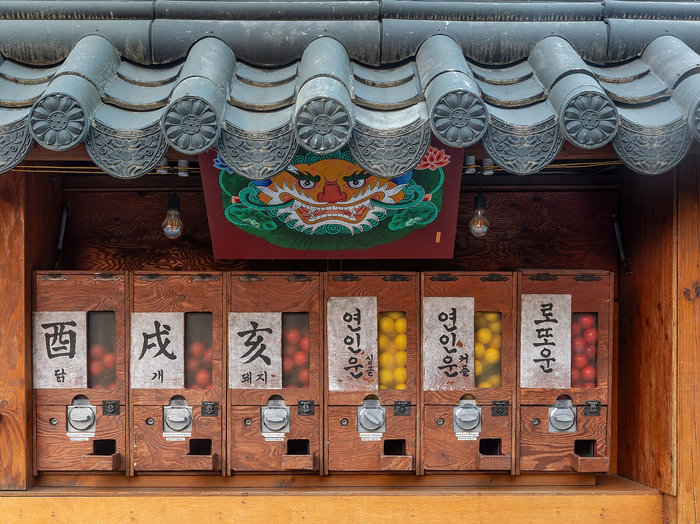 酉
닭
戌
개
亥
돼지
연인운
싱글
연인운
커플
로또운